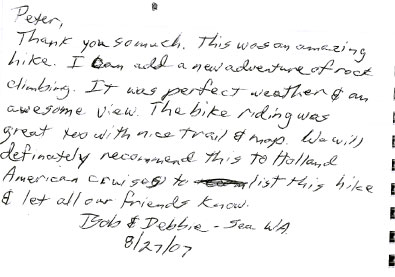 Peter,
Thank you so much. This was an amazing
hike. I can add a new adventure of rock
climbing. It was perfect weather & an
awesome view. The bike riding was
great too with nice trail & map. We will
definately recommend this to Holland
American cruises to list this hike
& let all our friends know.
Bob & Debbie - Sea. WA.
8/27/07